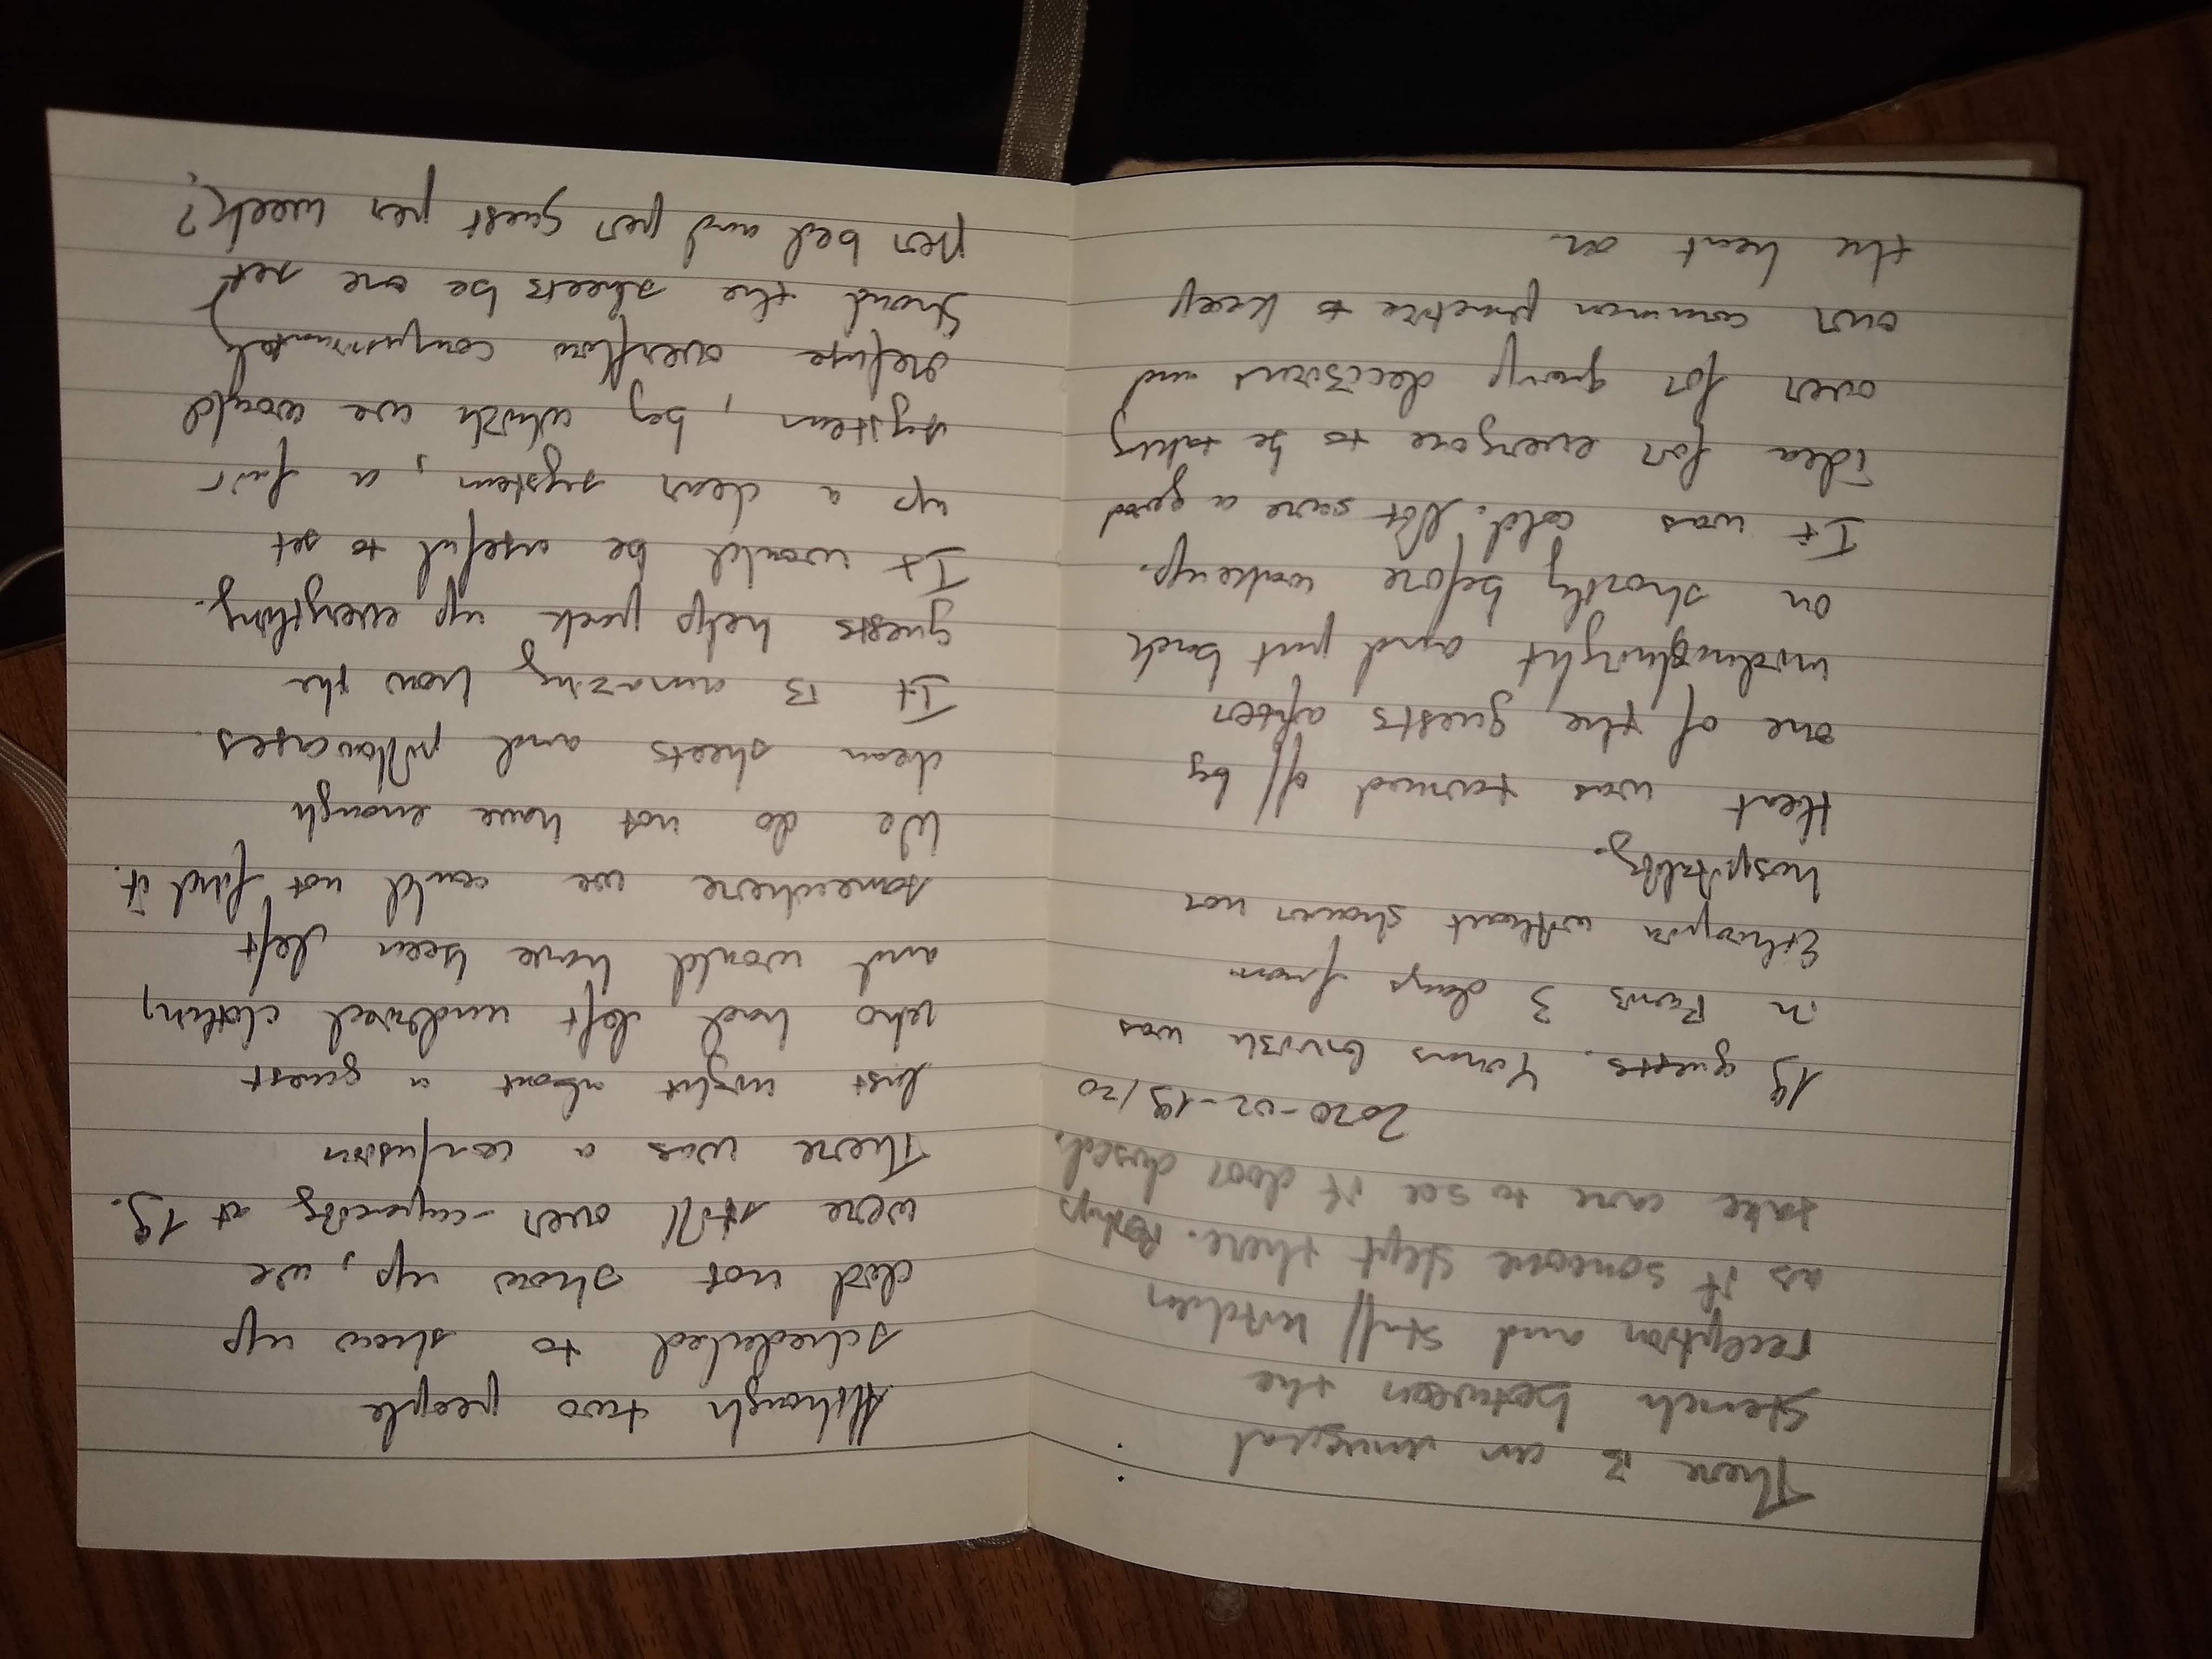 There is an unusual
stench between the
reception and staff kitchen
as if someone slept there. Perhaps
take care to see if door closed.
2020-02-19/20
19 guests. Yonas was
in Paris 3 days from
Ethiopia without shower nor
hospitality.
Heat was turned off by
one of the guests after
and put back
on shortly before wakeup.
It was cold. Not sure a good
idea for everyone to be taking
over for group decisions and
our common practice to keep
the heat on.
Although two people
scheduled to show up
did not show up, we
were still over-capacity at 19.
There was a confusion
last night about a guest
who had left clothing
and would have been left
somewhere we could not find it.
We do not have enough
clean sheets and pillowcases.
It is amazing how the
guests help pack up everything.
It would be useful to set
up a clear system, a fair
system, by which we would
refuse overflow compassionately
Should the sheets be one set
per bed and per guest per week?